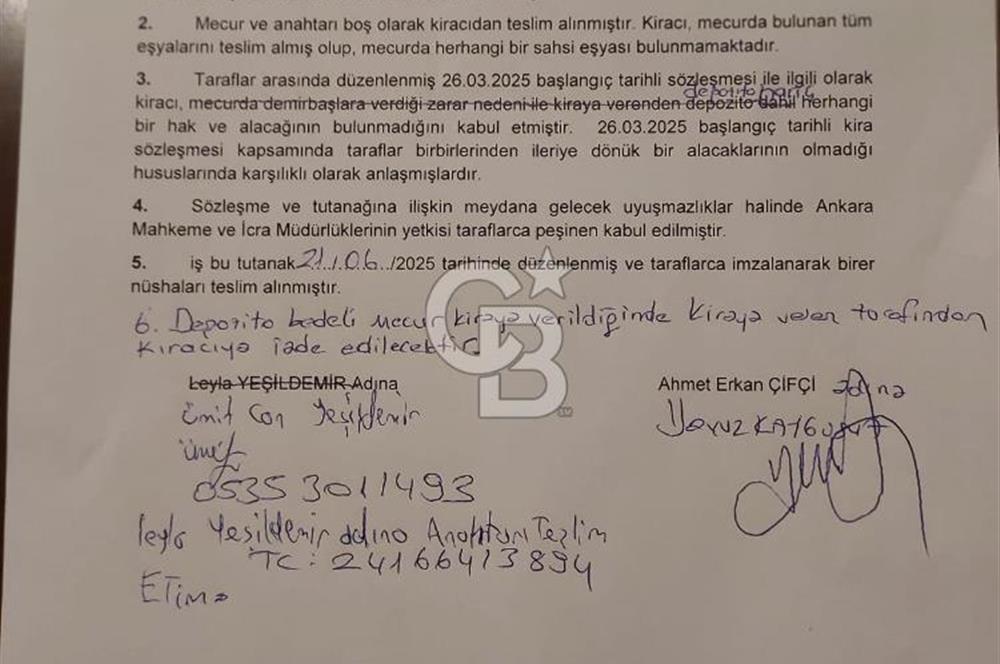 2. Mecur ve anahtarı boş olarak kiracıdan teslim alınmıştır. Kiracı, mecurda bulunan tüm
eşyalarını teslim almış olup, mecurda herhangi bir sahsi eşyası bulunmamaktadır.
3. Taraflar arasında düzenlenmiş 26.03.2025 başlangıç tarihli sözleşmesi ile ilgili olarak
depozito hariç
kiracı, mecurda demirbaşlara verdiği zarar nedeni ile kiraya verenden depozito dahil herhangi
bir hak ve alacağının bulunmadığını kabul etmiştir. 26.03.2025 başlangıç tarihli kira
sözleşmesi kapsamında taraflar birbirlerinden ileriye dönük bir alacaklarının olmadığı
hususlarında karşılıklı olarak anlaşmışlardır.
4. Sözleşme ve tutanağına ilişkin meydana gelecek uyuşmazlıklar halinde Ankara
Mahkeme ve İcra Müdürlüklerinin yetkisi taraflarca peşinen kabul edilmiştir.
5. iş bu tutanak 21./.06../2025 tarihinde düzenlenmiş ve taraflarca imzalanarak birer
nüshaları teslim alınmıştır.
6. Depozito bedeli mecur kiraya verildiğinde kiraya veren tarafından
kiracıya iade edilecektir.
Leyla YEŞİLDEMİR Adına
Ahmet Erkan ÇİFÇİ adına
Ümit Can Yeşildemir
Yavuz
0535 3011493
Leyla Yeşildemir adına Anahtarı Teslim
TC: 24166413894
ETim
CB
SM